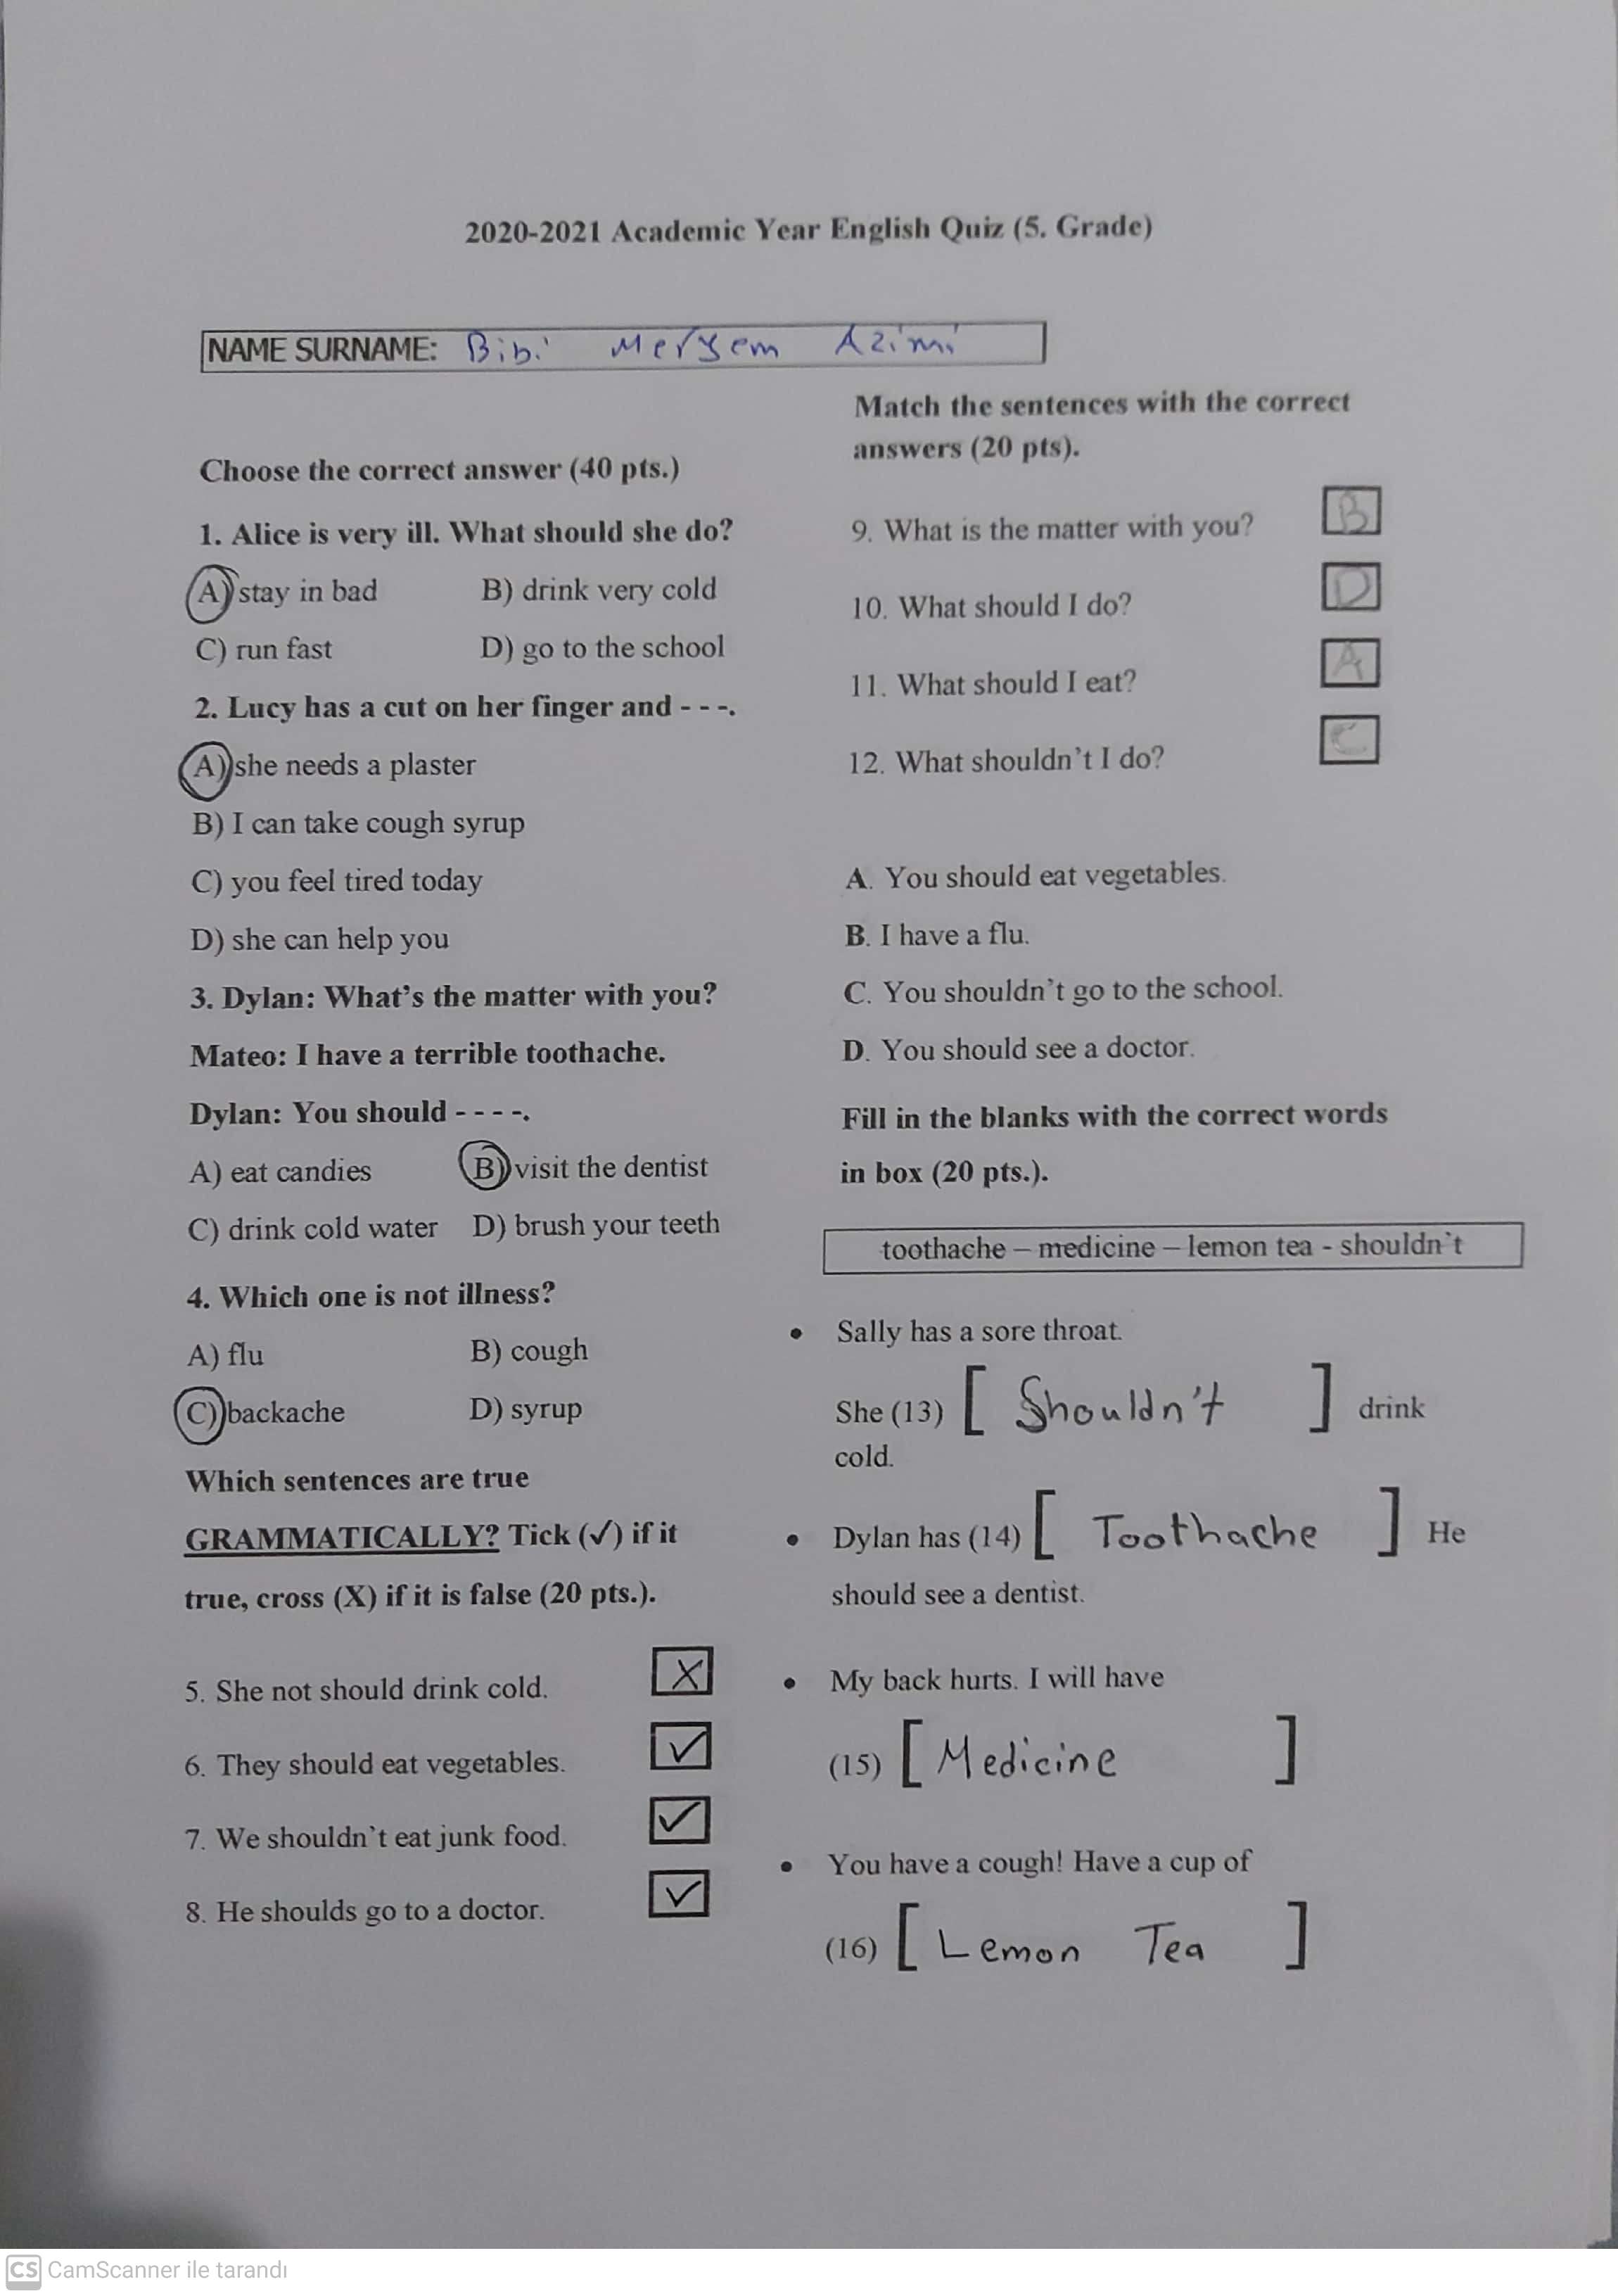 2020-2021 Academic Year English Quiz (5. Grade)
NAME SURNAME: Bibi Meryem Azimi
Choose the correct answer (40 pts.)
1. Alice is very ill. What should she do?
A) stay in bad B) drink very cold
C) run fast D) go to the school
2. Lucy has a cut on her finger and - - -.
A) she needs a plaster
B) I can take cough syrup
C) you feel tired today
D) she can help you
3. Dylan: What's the matter with you?
Mateo: I have a terrible toothache.
Dylan: You should - - - -.
A) eat candies B) visit the dentist
C) drink cold water D) brush your teeth
4. Which one is not illness?
A) flu B) cough
C) backache D) syrup
Which sentences are true
GRAMMATICALLY? Tick (✓) if it
true, cross (X) if it is false (20 pts.).
5. She not should drink cold. X
6. They should eat vegetables. ✓
7. We shouldn't eat junk food. ✓
8. He shoulds go to a doctor. ✓
Match the sentences with the correct
answers (20 pts).
9. What is the matter with you? B
10. What should I do? D
11. What should I eat? A
12. What shouldn't I do? C
A. You should eat vegetables.
B. I have a flu.
C. You shouldn't go to the school.
D. You should see a doctor.
Fill in the blanks with the correct words
in box (20 pts.).
toothache – medicine – lemon tea - shouldn't
• Sally has a sore throat.
She (13) [ Shouldn't ] drink
cold.
• Dylan has (14) [ Toothache ] He
should see a dentist.
• My back hurts. I will have
(15) [ Medicine ]
• You have a cough! Have a cup of
(16) [ Lemon Tea ]
CS CamScanner ile tarandı